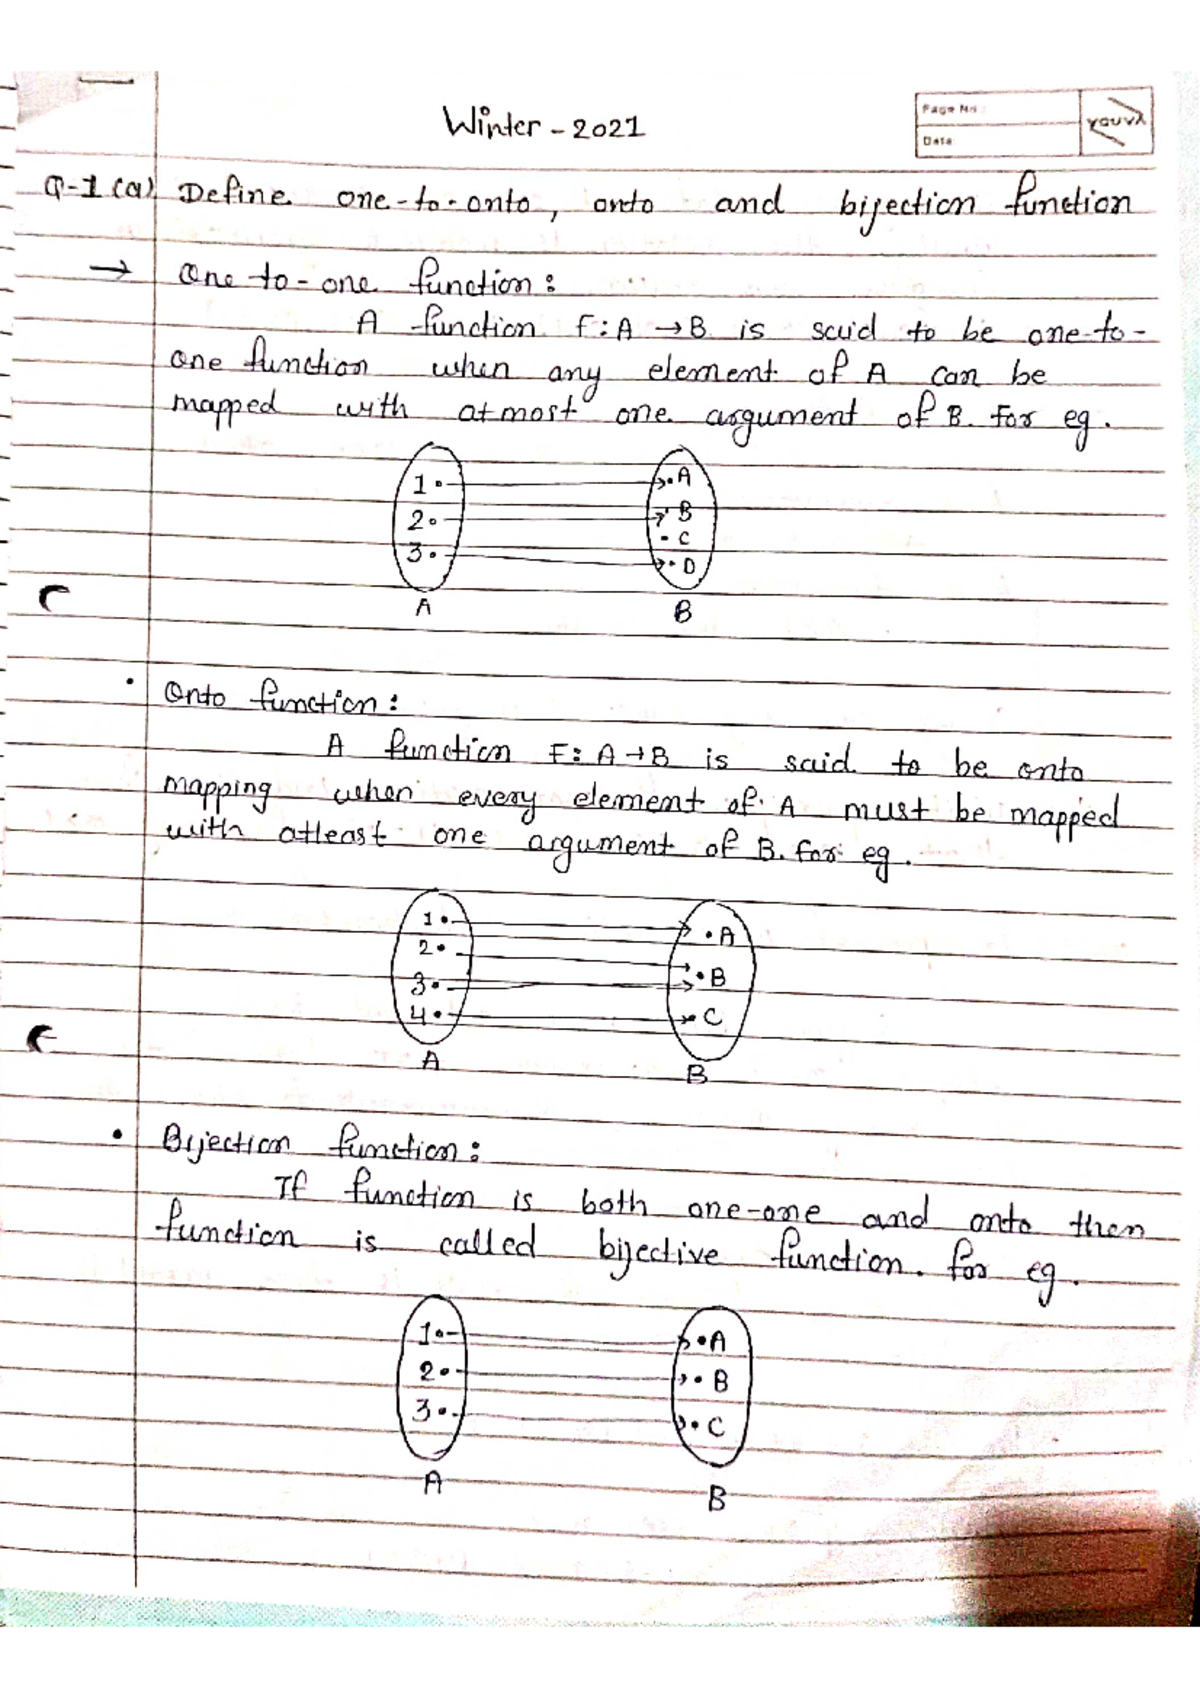 Winter - 2021
Page No.:
Date:
YOUVA
Q-1 (a) Define one-to-onto, onto and bijection function
→ One-to-one function:
A function F: A → B is said to be one-to-
one function when any element of A can be
mapped with atmost one argument of B. For eg.
1 A
2 B
C
3 D
A B
• Onto function:
A function F: A → B is said to be onto
mapping when every element of A must be mapped
with atleast one argument of B. For eg.
1 A
2
3 B
4 C
A B
• Bijection function:
If function is both one-one and onto then
function is called bijective function. For eg.
1 A
2 B
3 C
A B